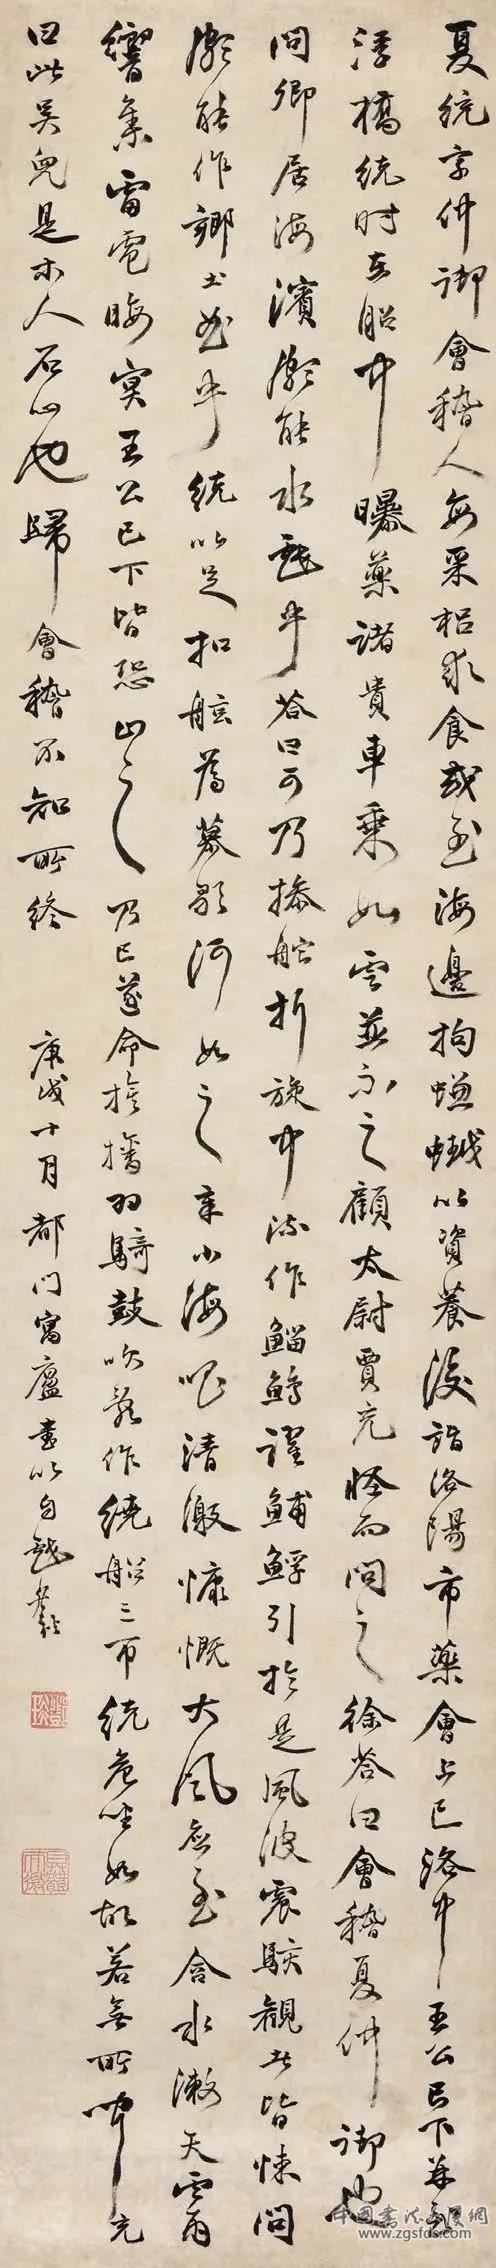 夏統字仲御會稽人每采梠求食或至海邊拘螊𧑅以資養後詣洛陽市藥會上巳洛中王公已下並至
浮橋統時在船中曝藥諸貴車乘如雲並不之顧太尉賈充怪而問之徐答曰會稽夏仲御也
問卿居海濱頗能水戲乎答曰可乃操舵折旋中流作鯔鱘躍鯆䱐引於是風波震駭觀者皆悚問
頗能作鄉土曲乎統以足扣舷為慕歌河女之章小海唱清激慷慨大風應至含水漱天雲雨
響集雷電晦冥王公已下皆恐止之乃已遂命旌旛羽騎鼓吹亂作繞船三帀統危坐如故若無所聞充
曰此吳兒是木人石心也歸會稽不知所終
庚戌十月都門寓廬書以自
中国书法发展网
www.zgsfds.com